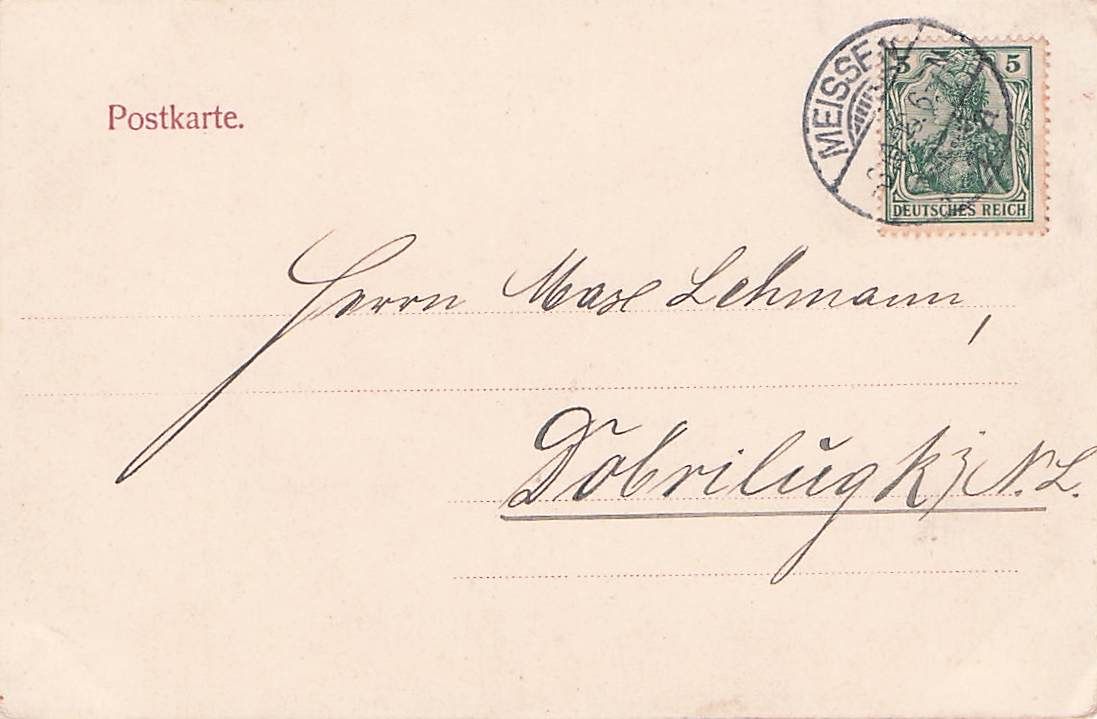 Postkarte.
MEISSEN
5 5
DEUTSCHES REICH
Herrn Max Lehmann,
Dobrilugk N.L.